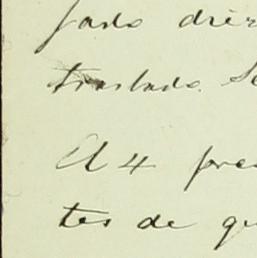 fado dier
traslado. Se
A 4 pre
tes de qu